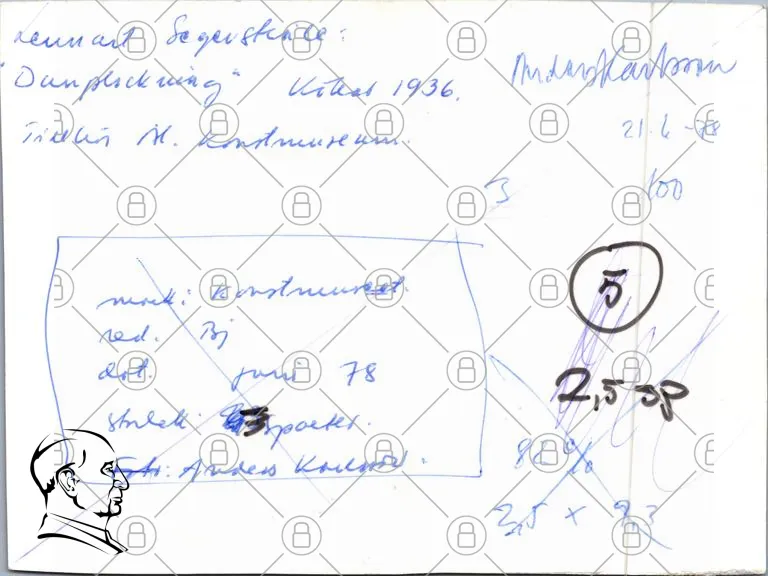 Lennart Segerstråle:
"Dunplockning" Kökar 1936.
Tillhör Ål. Konstmuseum.
Anders Karlsson
21.6 -78
3 100
märk: Konstmuseet.
red. Bj
dat. juni 78
storlek: 3 spalter.
Foto: Anders Karlsson.
5
2,5 sp
82 %
2,5 x 9,3